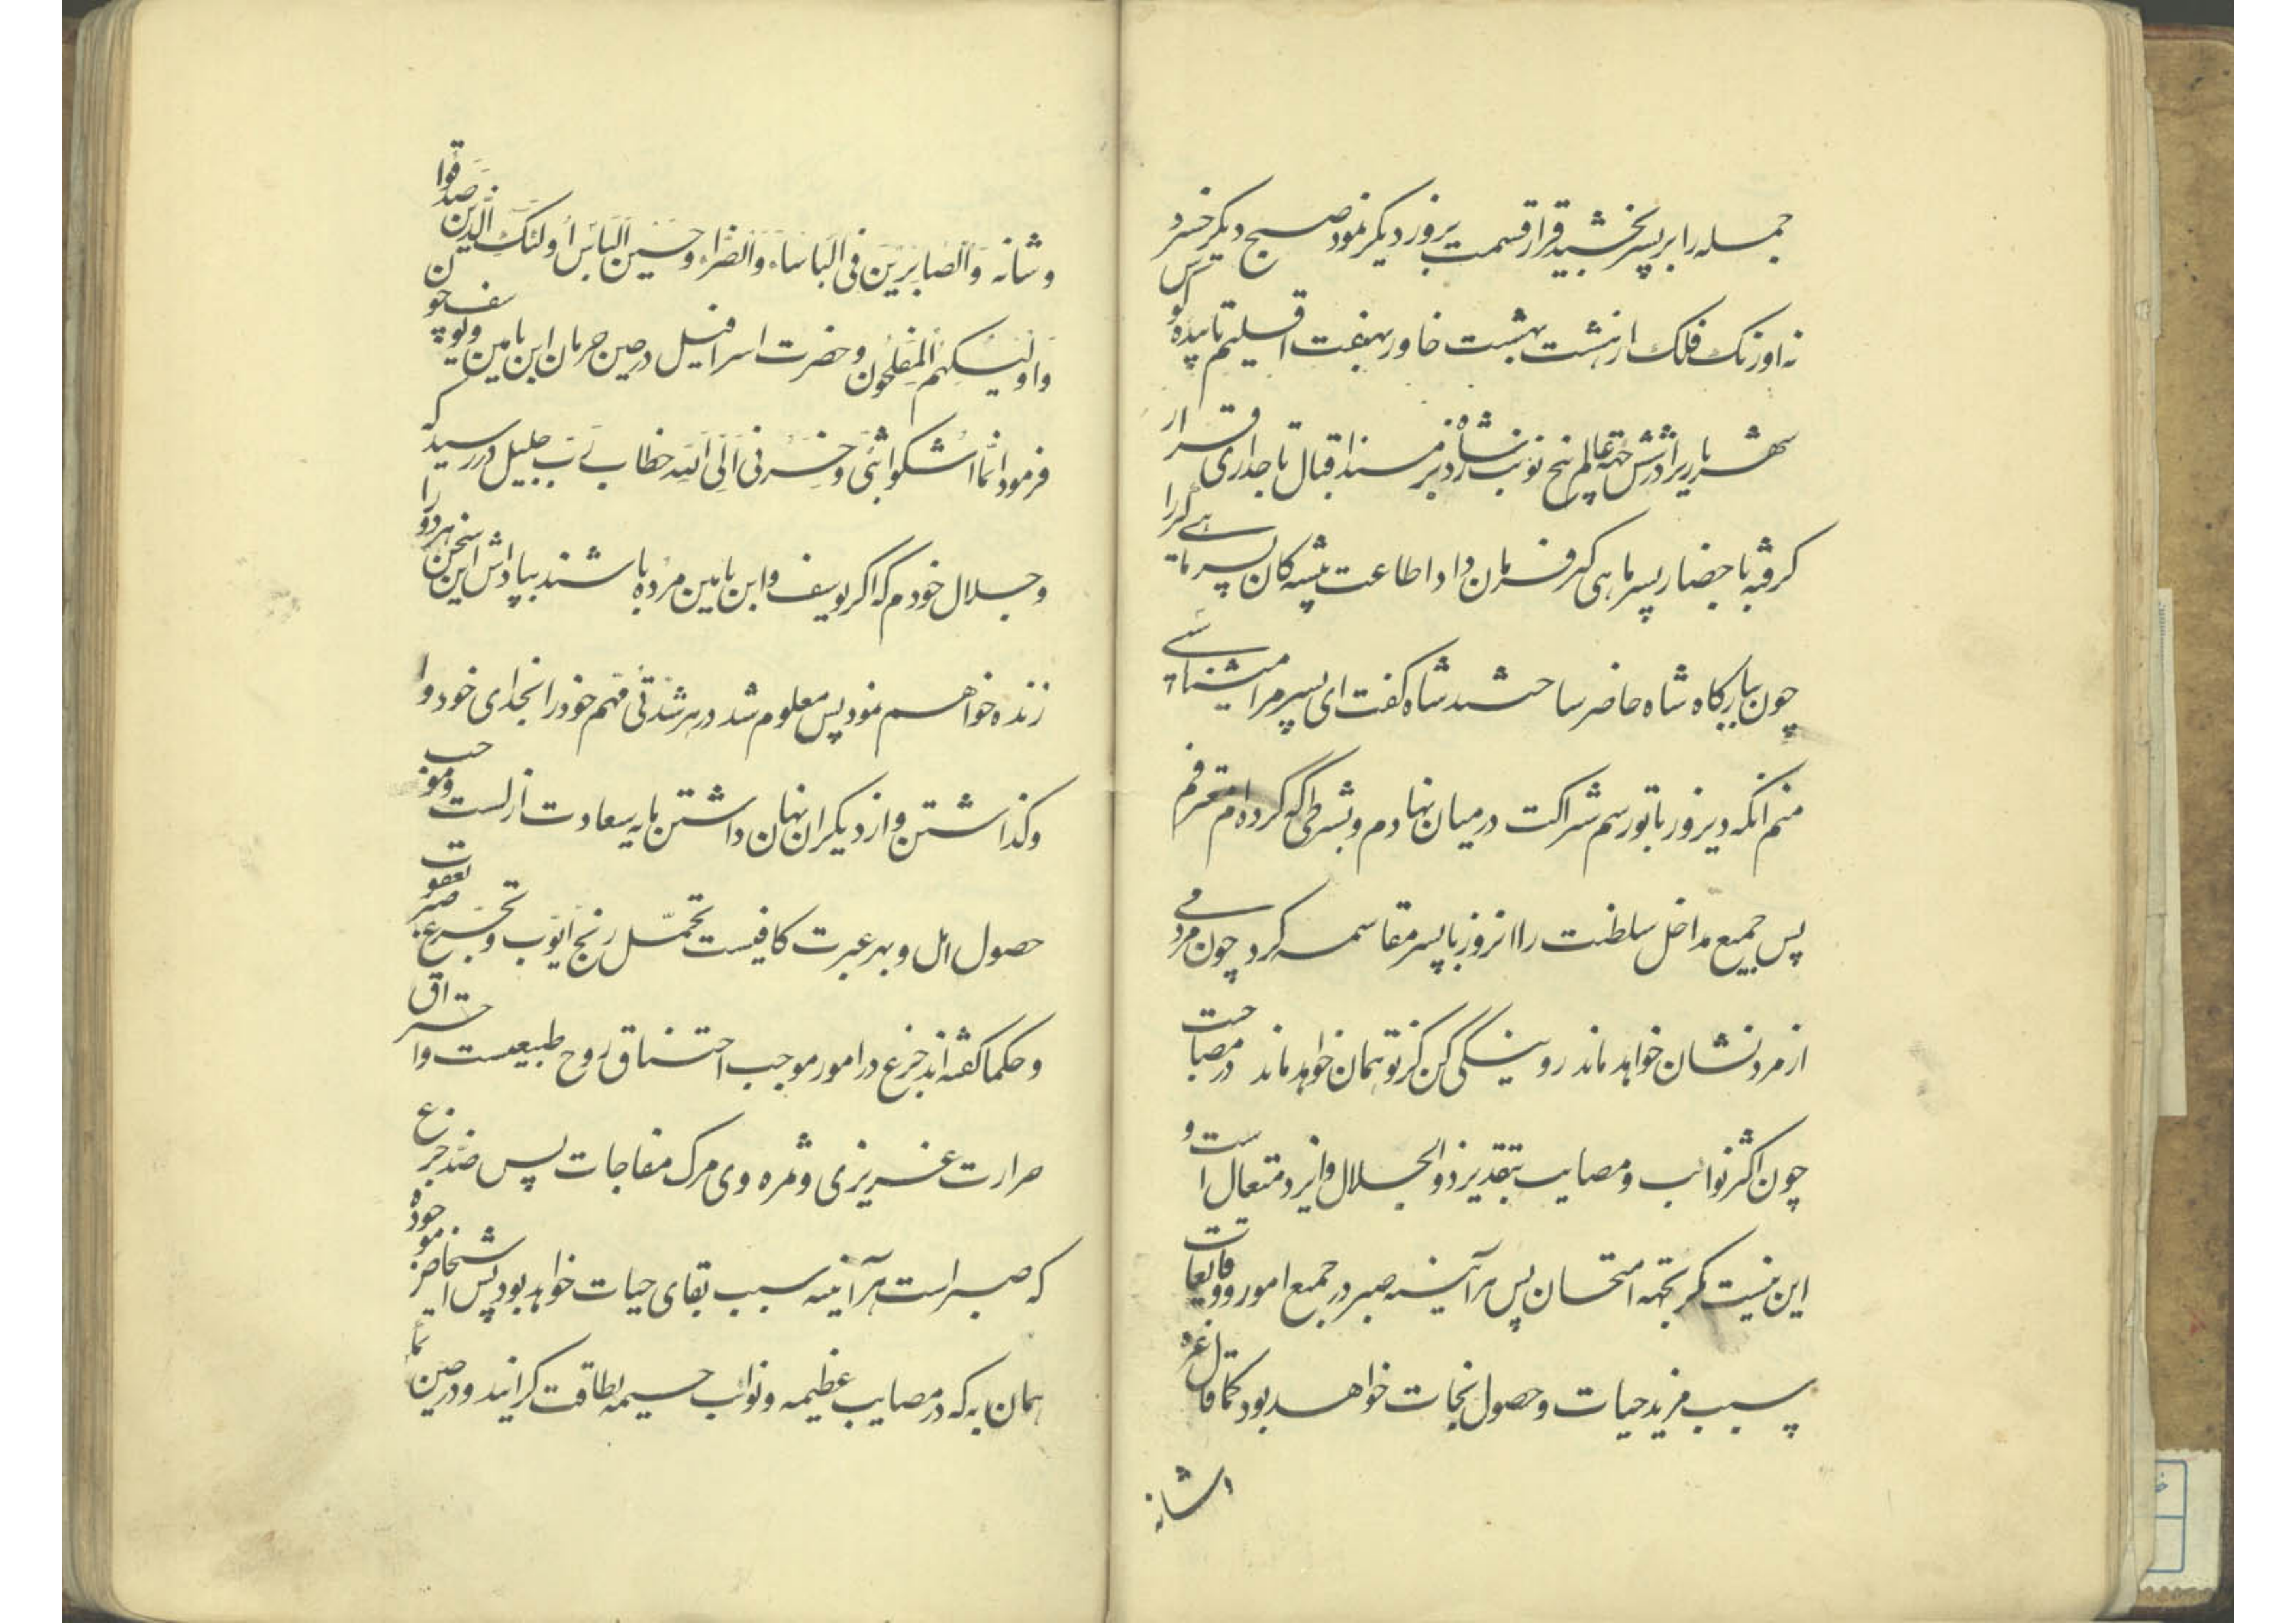 جمله را بر پسر بخشید قرار قسمت بروز دیگر نمود صبح دیگر خسرو
نه اورنک فلک از هشت بهشت خاور بهفت اقلیم تابیده کوس
شهریاریرا در شش جهة عالم پنج نوبت زد شاه بر مسند اقبال تاجداری قرار
کرفته باحضار پسر ماهی کیر فرمان داد اطاعت پیشه کان پسر ماهی کیر را
چون ببارکاه شاه حاضر ساختند شاه کفت ای پسر مرا میشناسی
منم انکه دیروز با تو رسم شراکت در میان نهادم و بشرطی که کرده ام معترفم
پس جمیع مداخل سلطنت را انروز با پسر مقاسمه کرد چون مردمی
از مرد نشان خواهد ماند رو نیکی کن کز تو همان خواهد ماند در مصباحت
چون اکثر نوائب و مصایب بتقدیر ذو الجلال و ایزد متعال است و
این نیست مکر بجهة امتحان پس هر آینه صبر در جمیع امور و وقایعات
سبب مزید حیات و حصول نجات خواهد بود کما قال عز
وشانه
وشانه وَالصّابِرینَ فی البَاساء وَالضَرّاء وحین البَاس اُولئکَ الَّذینَ صَدَقوا
وَاولئِکَ هُم المُفلِحُون و حضرت اسرافیل در حین حرمان ابن یامین و یوسف چون
فرمود انَّما اَشکوا بَثّی وَ حُزنی اِلَی الله خطاب رب جلیل در رسید که
و جلال خودم که اکر یوسف و ابن یامین مرده باشند بپاداش این سخن هر دو را
زنده خواهم نمود پس معلوم شد در هر شدّتی مهم خود را بخدای خود وا
وکذاشتن و از دیکران نهان داشتن مایه سعادت ازلست و موجب
حصول امل و بهر عبرت کافیست تحمّل رنج ایّوب و تجرّع صبر یعقوب
و حکما کفته اند جزع در امور موجب احتناق روح طبیعیست و احتراق
حرارت غریزی و ثمره وی مرک مفاجات پس ضد جزع
که صبر است هر آینه سبب بقای حیات خواهد بود پس اشخاص موجوده
همان به که در مصایب عظیمه و نوائب جسیمه بطاقت کرایند و در حین